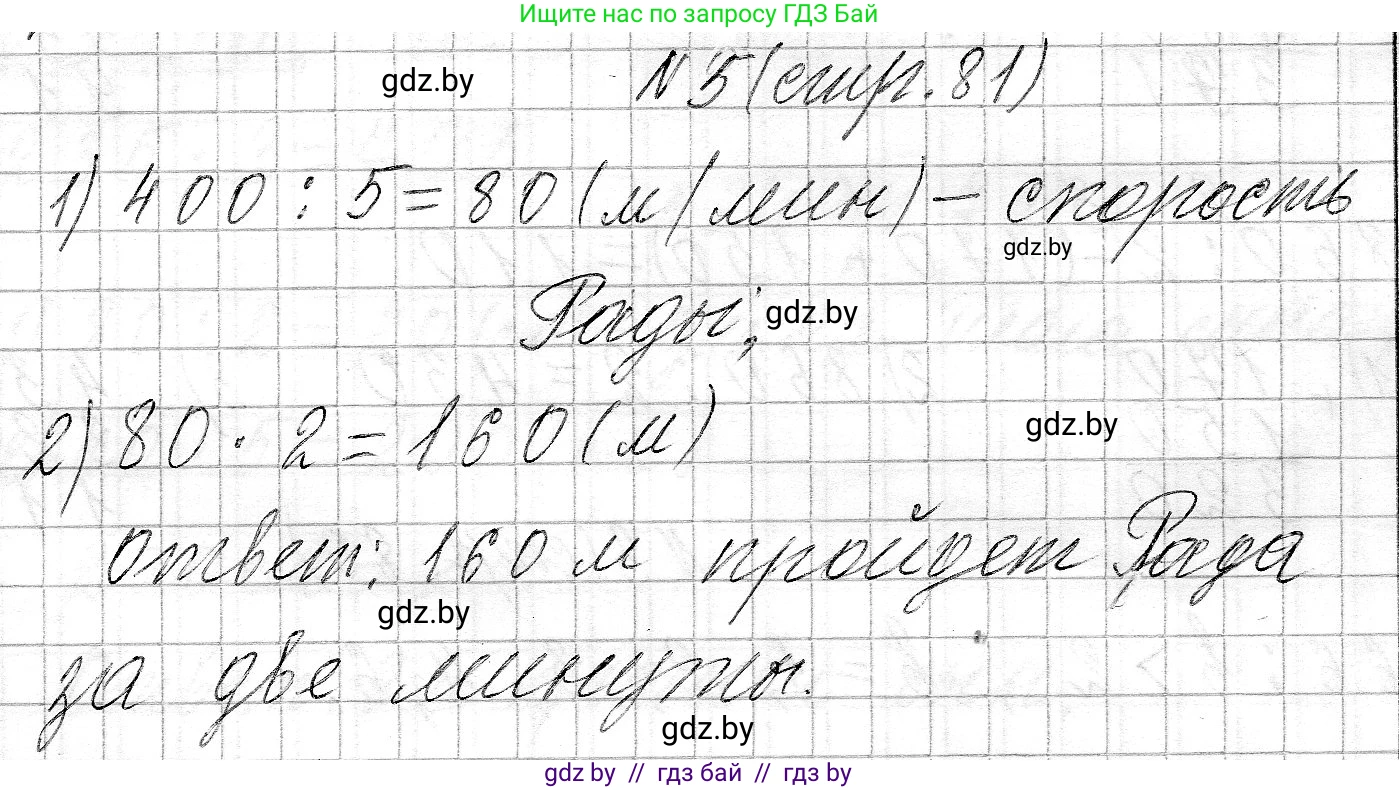 Ищите нас по запросу ГДЗ Бай
gdz.by № 5 (стр. 81)
1) 400 : 5 = 80 (м/мин) – скорость
gdz.by
Рады; gdz.by
2) 80 · 2 = 160 (м)
gdz.by
ответ: 160 м пройдет Рада
gdz.by
за две минуты.
gdz.by
gdz by // гдз бай // гдз by